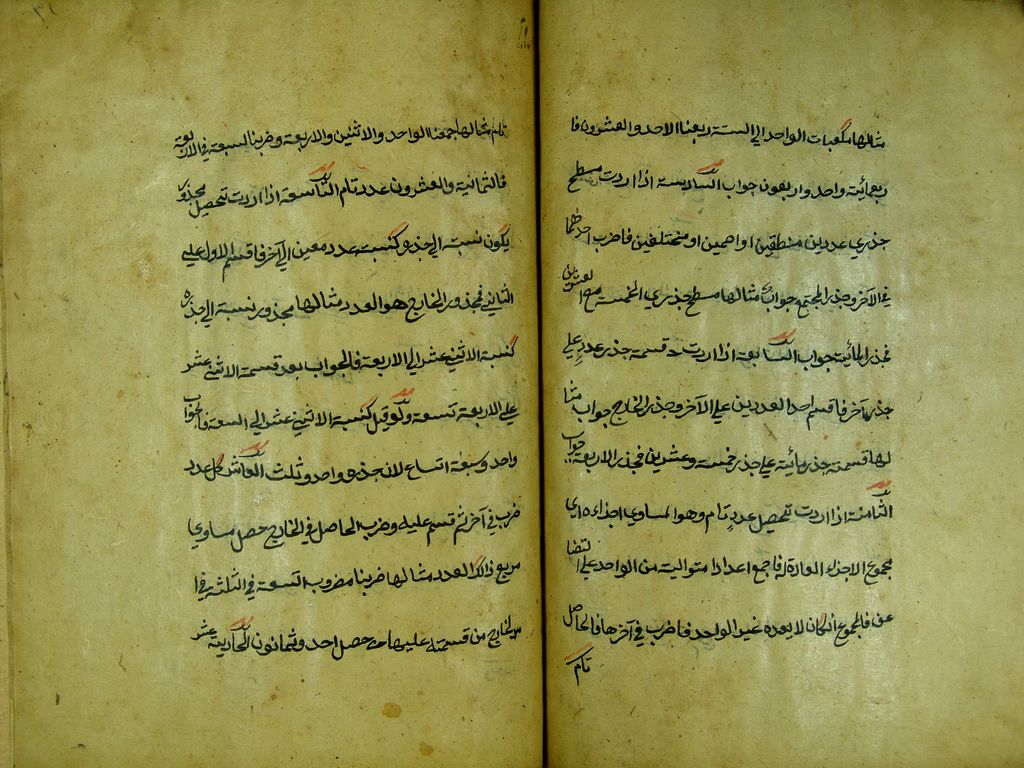 مثالها مكعبات الواحد الى الستة ربعنا الاحد والعشرون فا
ربعمائة واحد واربعون جواب السادسة اذا اردت مسطح
جذري عددين منطقين او اصمين او مختلفين فاضرب احدهما
في الآخر وجذر المجتمع جواب مثالها مسطح جذري الخمسة مع العشرين
فجذر المائة جواب السابعة اذا اردت قسمة جذر عدد على
جذر آخر فاقسم احد العددين على الآخر وجذر الخارج جواب مثا
لها قسمة جذر مائة على جذر خمسة وعشرين فجذر الاربعة جواب
الثامنة اذا اردت تحصيل عدد تام وهو المساوي اجزاءه اى
مجموع الاجزاء العادة له فاجمع اعدادا متوالية من الواحد على التضا
عف فالمجموع انكان لا يعده غير الواحد فاضرب في آخرها فالحاصل
تام
تام مثالها جمعنا الواحد والاثنين والاربعة وضربنا السبعة في الاربعة
فالثمانية والعشرون عدد تام التاسعة اذا اردت تحصيل مجذور
يكون نسبته الى جذره كنسبة عدد معين الى آخر فاقسم الاول على
الثاني فمجذور الخارج هو العدد مثالها مجذور نسبة الى جذره
كنسبة الاثنى عشر الى الاربعة فالجواب بعد قسمة الاثنى عشر
على الاربعة تسعة ولو قيل كنسبة الاثنى عشر الى التسعة فالجواب
واحد وسبعة اتساع لان جذره واحد وثلث العاشر كل عدد
ضرب في آخر ثم قسم عليه وضرب الحاصل في الخارج حصل مساوي
مربع ذالك العدد مثالها ضربنا مضروب التسعة في الثلثة في ا
الخارج من قسمته عليها حصل احد وثمانون الحادية عشر